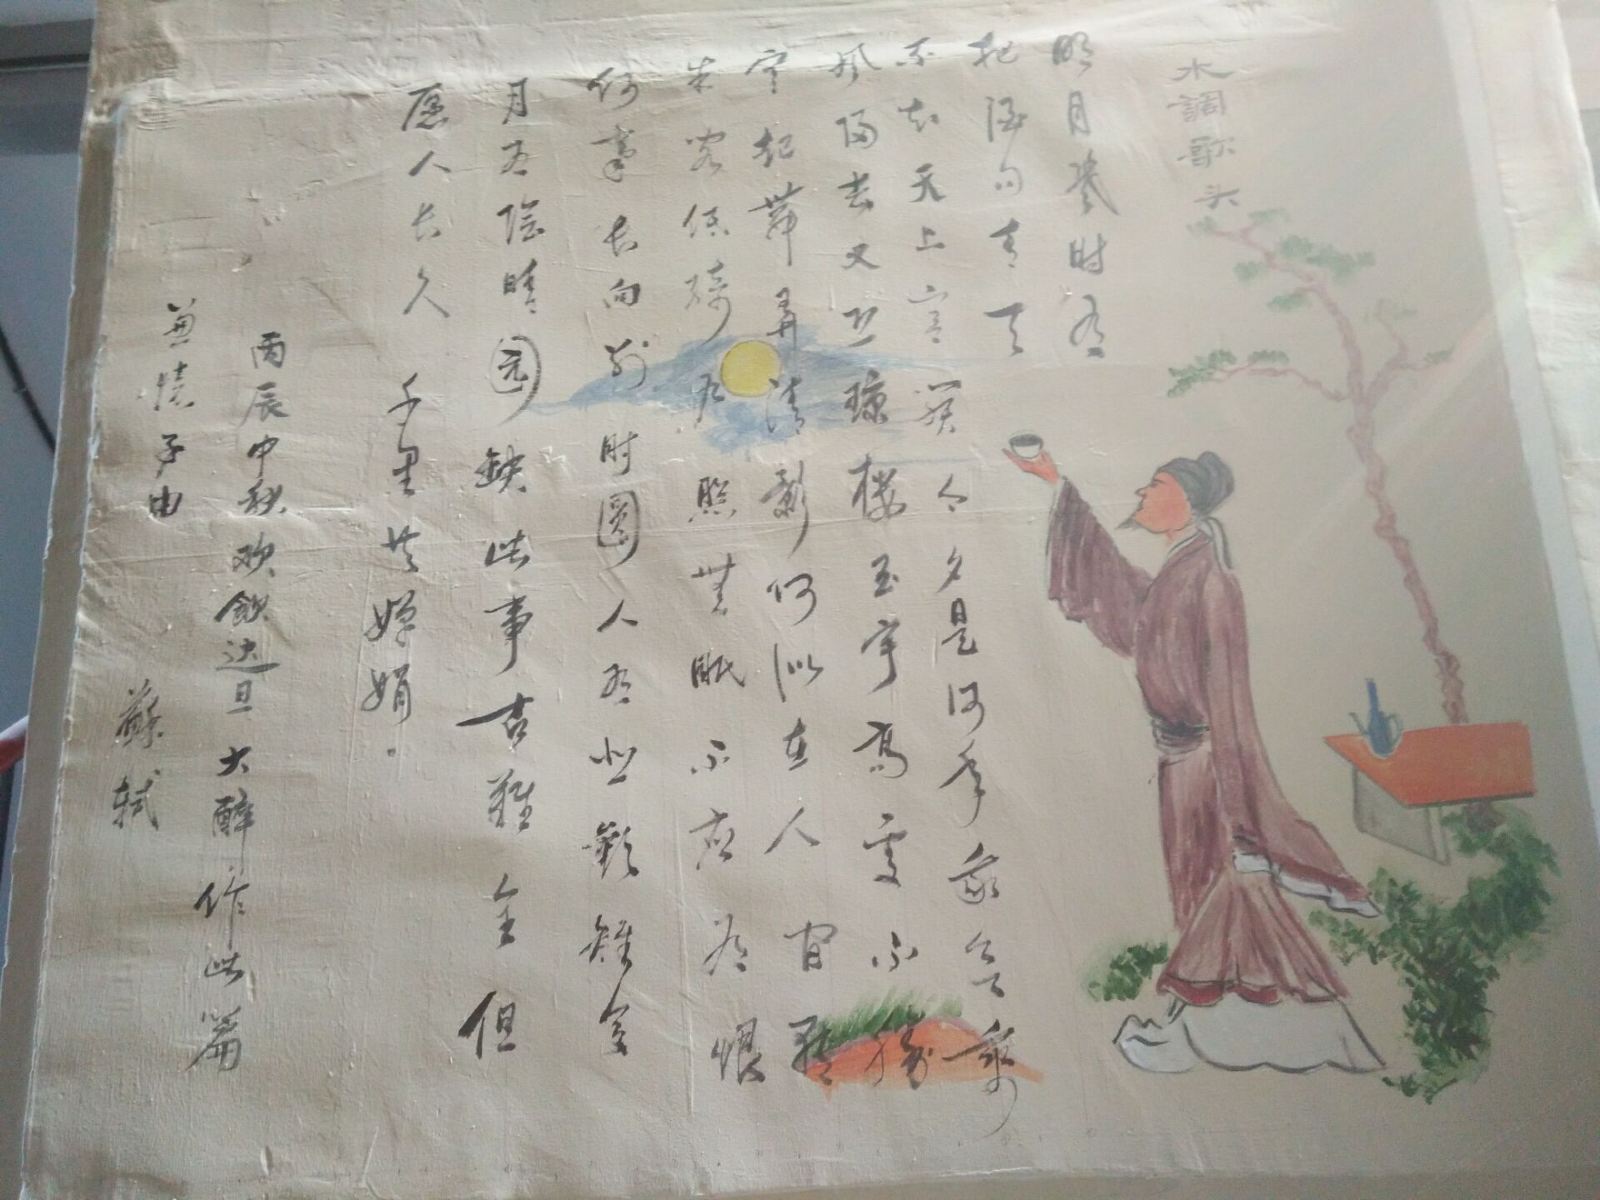 水調歌头
明月幾时有
把酒问青天
不知天上宫阙今夕是何年我欲乘
风归去又恐琼楼玉宇高处不胜
寒起舞弄清影何似在人间转
朱阁低绮户照無眠不应有恨
何事长向别时圆人有悲歡離合
月有阴晴园缺此事古難全但
愿人长久 千里共婵娟。
丙辰中秋欢飲达旦大醉作此篇
兼懷子由 蘇轼